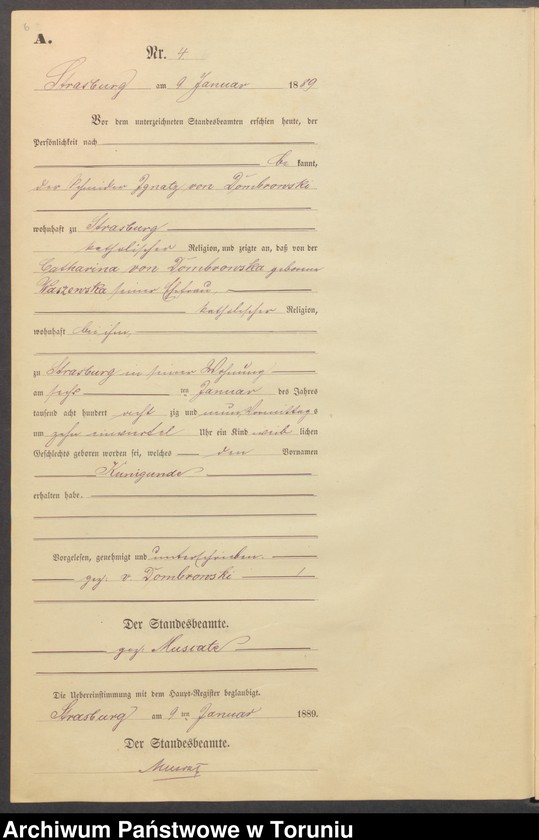 A.
Nr. 4
Strasburg am 9 Januar 1889
Vor dem unterzeichneten Standesbeamten erschien heute, der
Persönlichkeit nach
be kannt,
der Schneider Ignatz von Dombrowski
wohnhaft zu Strasburg
katholischer Religion, und zeigte an, daß von der
Catharina von Dombrowska geborenen
Kaszewska seiner Ehefrau
katholischer Religion,
wohnhaft bei ihm,
zu Strasburg in seiner Wohnung
am sechs ten Januar des Jahres
tausend acht hundert acht zig und neun Vormittags
um zehn einviertel Uhr ein Kind weib lichen
Geschlechts geboren worden sei, welches den Vornamen
Kunigunde
erhalten habe.
Vorgelesen, genehmigt und unterschrieben
gez. v Dombrowski
Der Standesbeamte.
gez. Muscate
Die Uebereinstimmung mit dem Haupt-Register beglaubigt.
Strasburg am 9 ten Januar 1889.
Der Standesbeamte.
Archiwum Państwowe w Toruniu